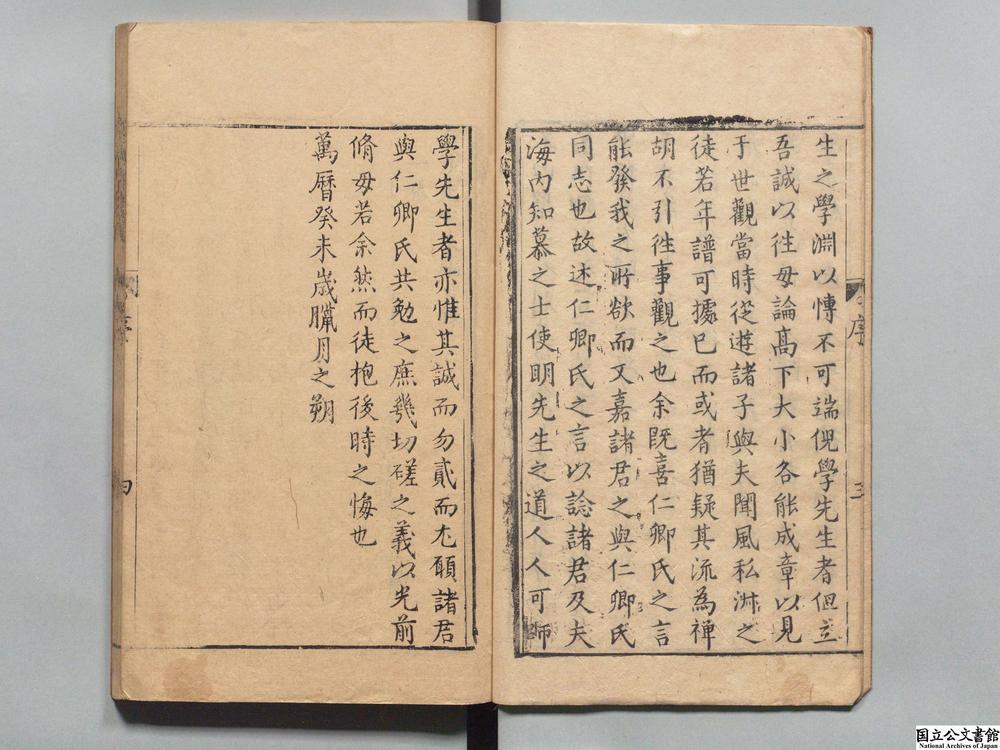 生之學淵以慱不可端倪學先生者但立
吾誠以徃毋論髙下大小各能成章以見
于世觀當時從遊諸子與夫聞風私淑之
徒若年譜可據已而或者猶疑其流為禅
胡不引徃事觀之也余既喜仁卿氏之言
能發我之所欲而又嘉諸君之與仁卿氏
同志也故述仁卿氏之言以諗諸君及夫
海內知慕之士使明先生之道人人可師
序
三
學先生者亦惟其誠而勿貳而尤願諸君
與仁卿氏共勉之庶幾切磋之義以光前
脩毋若余然而徒抱後時之悔也
萬曆癸未歲臘月之朔
序
四
国立公文書館
National Archives of Japan